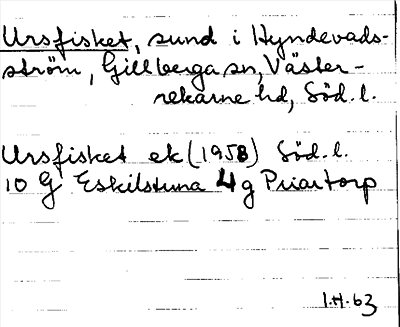 Ursfisket, sund i Hyndevads-
ström, Gillberga sn, Väster-
rekarne hd, Söd. l.
Ursfisket ek (1958) Söd. l.
10 G Eskilstuna 4 g Priortorp
I.H. 63